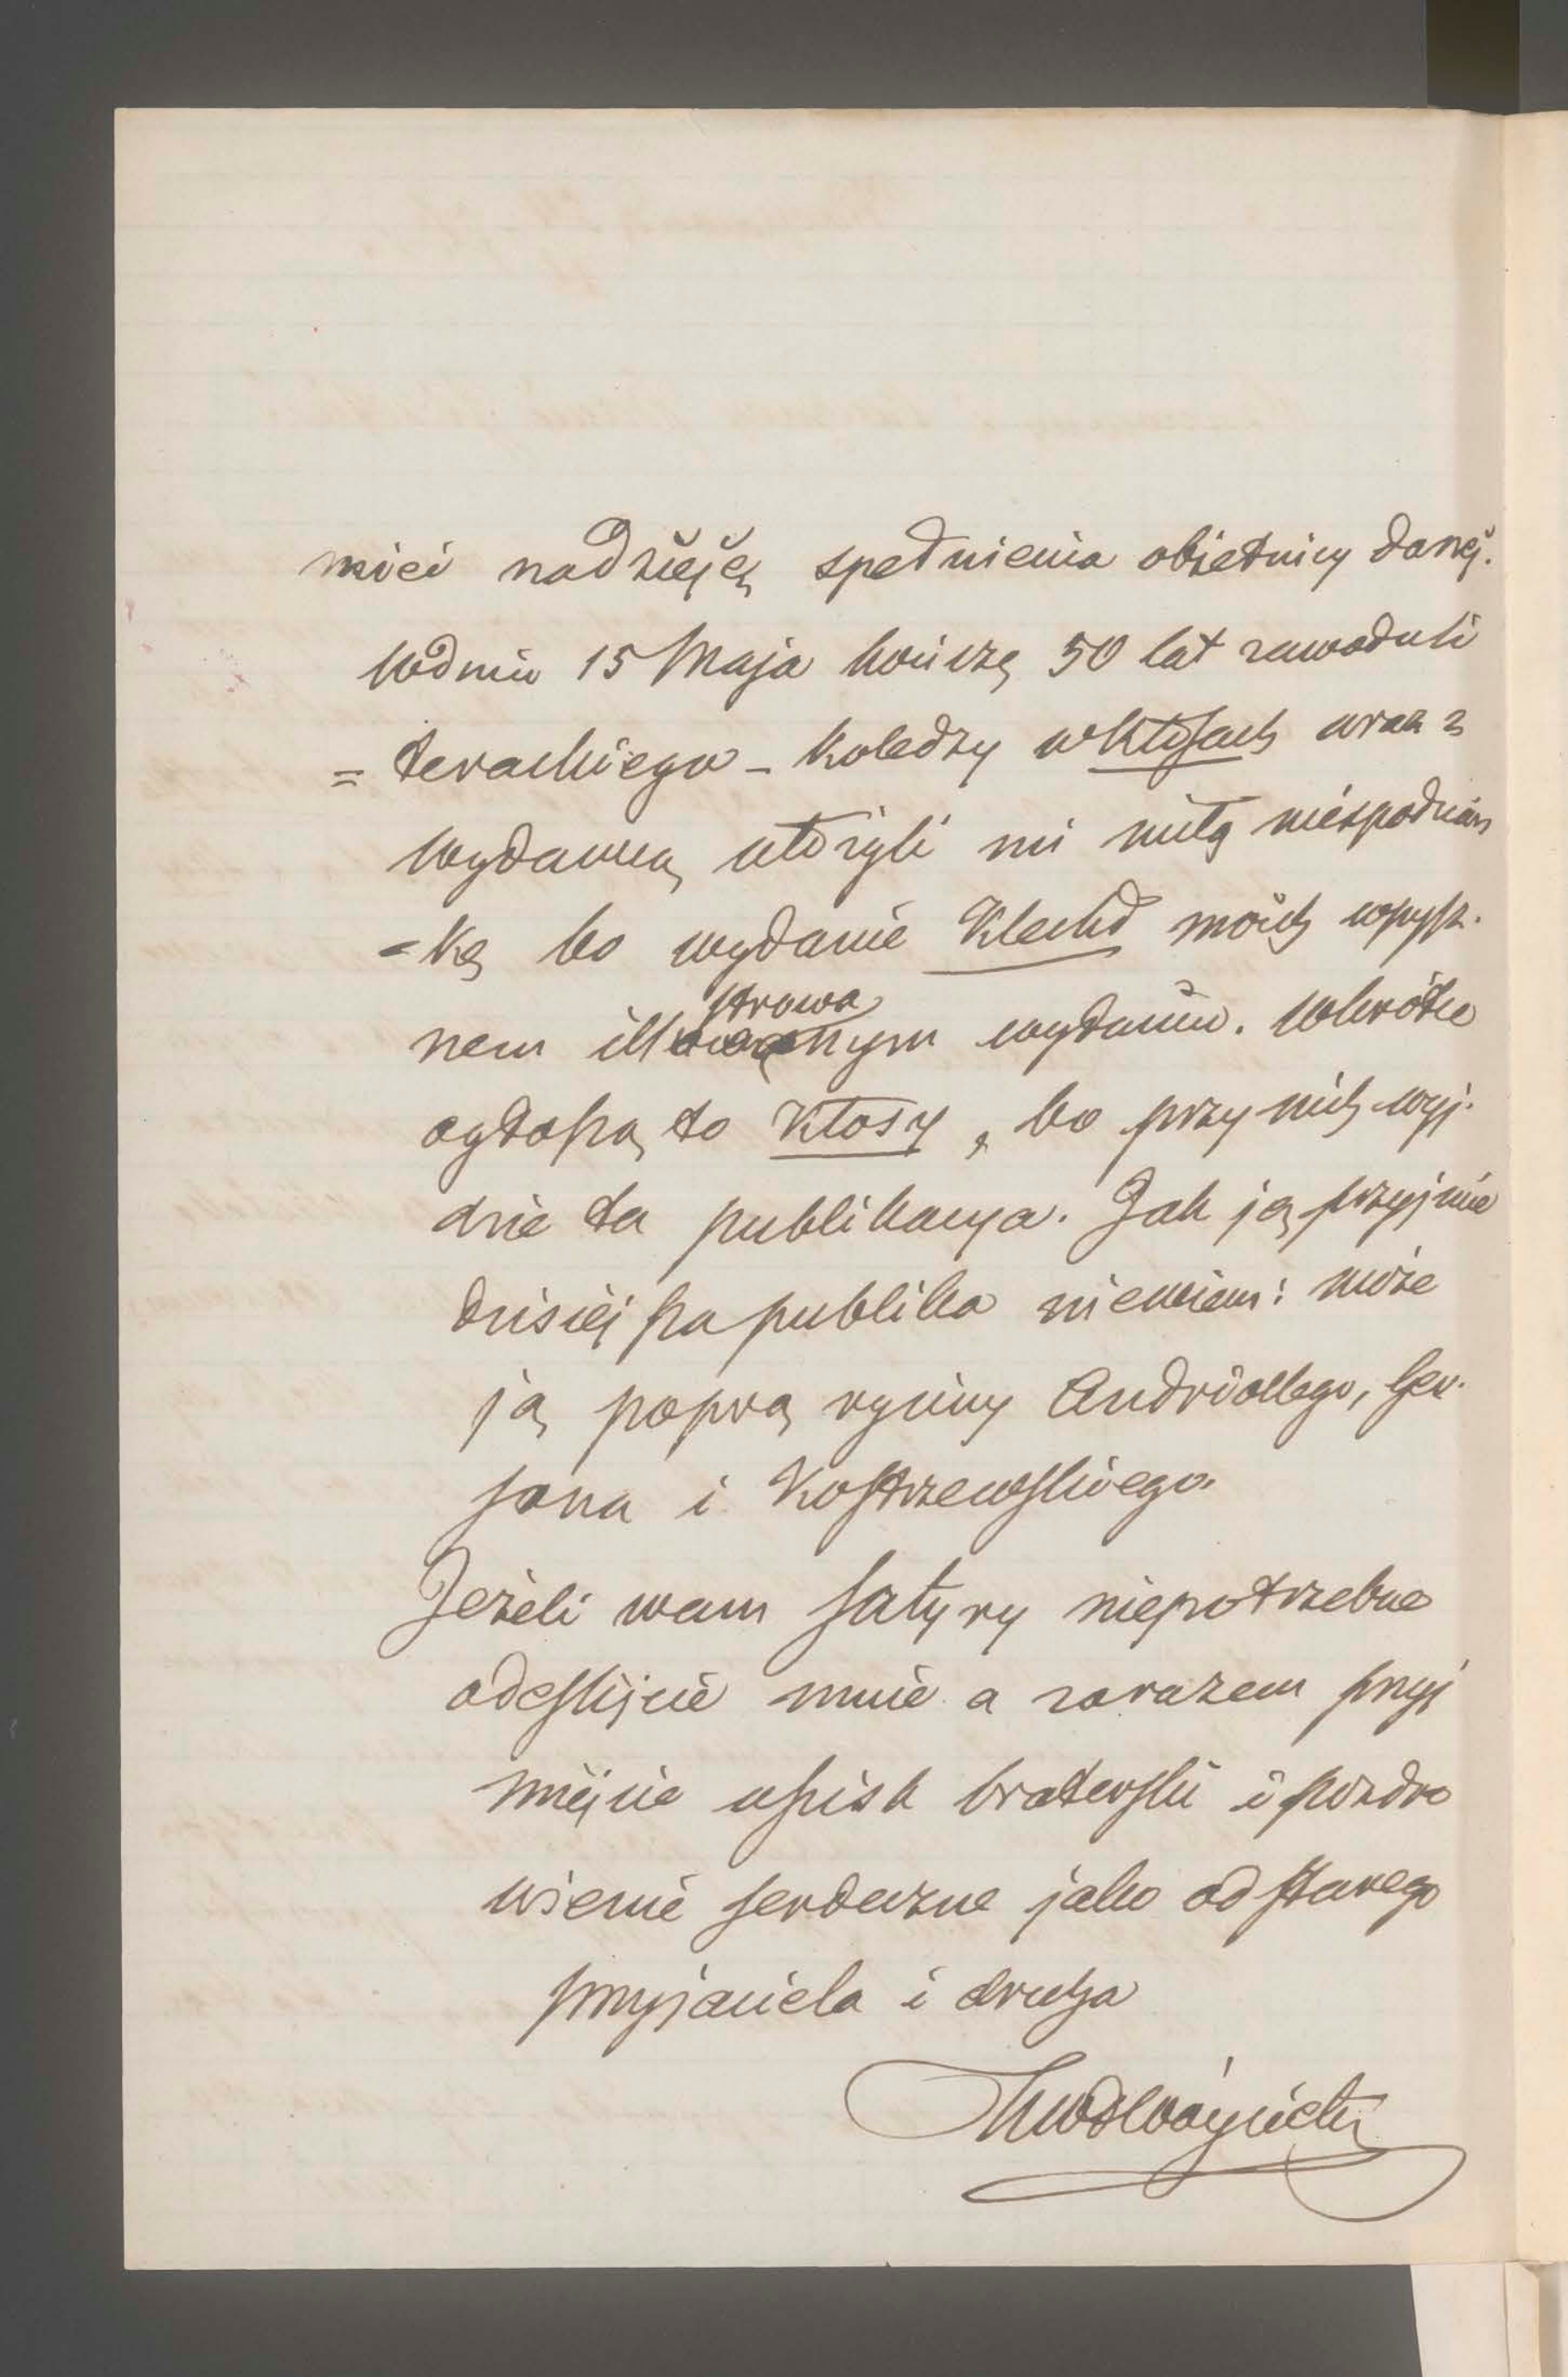 mieć nadzieję spełnienia obietnicy danéj.
W dniu 15 Maja kończę 50 lat zawodu li
= terackiego – koledzy w Kłosach wraz z
wydawcą ułożyli mi miłą niespodzian
= kę bo wydanie Klechd moich w pysz-
nem illustrowanym wydaniu. Wkrótce
ogłoszą to Kłosy, bo przy nich wyj-
dzie ta publikacya. Jak ją przyjmie
dzisiéjsza publika niewiem: może
ją poprą ryciny Andriollego, Ger-
sona i Kostrzewskiego.
Jeżeli wam Satyry niepotrzebne
odeszlijcie mnie a zarazem przyj
miéjcie uścisk braterski i pozdro
wienie serdeczne jako od starego
przyjaciela i druha
KWł Wóycicki